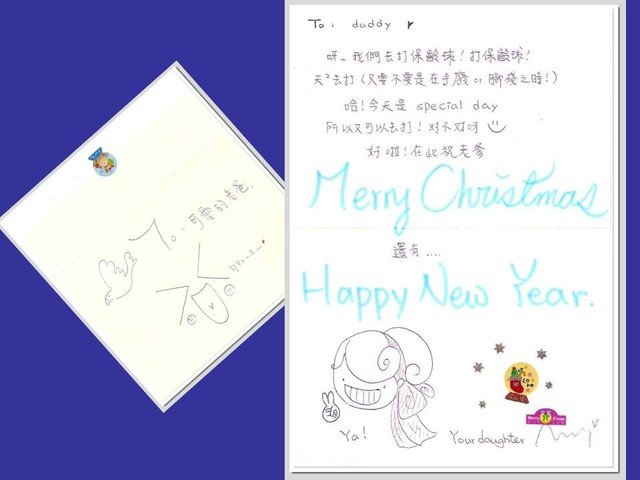 To: daddy
呀、我們去打保齡球!打保齡球!
天天去打(只要不要是在手廢 or 腳殘之時!)
哈!今天是 special day
所以又可以去打!對不對呀
好啦!在此祝老爹
Merry Christmas
還有....
Happy New Year.
Ya!
Your daughter
Merry X'mas
LOVE
To: 可愛的老爸.